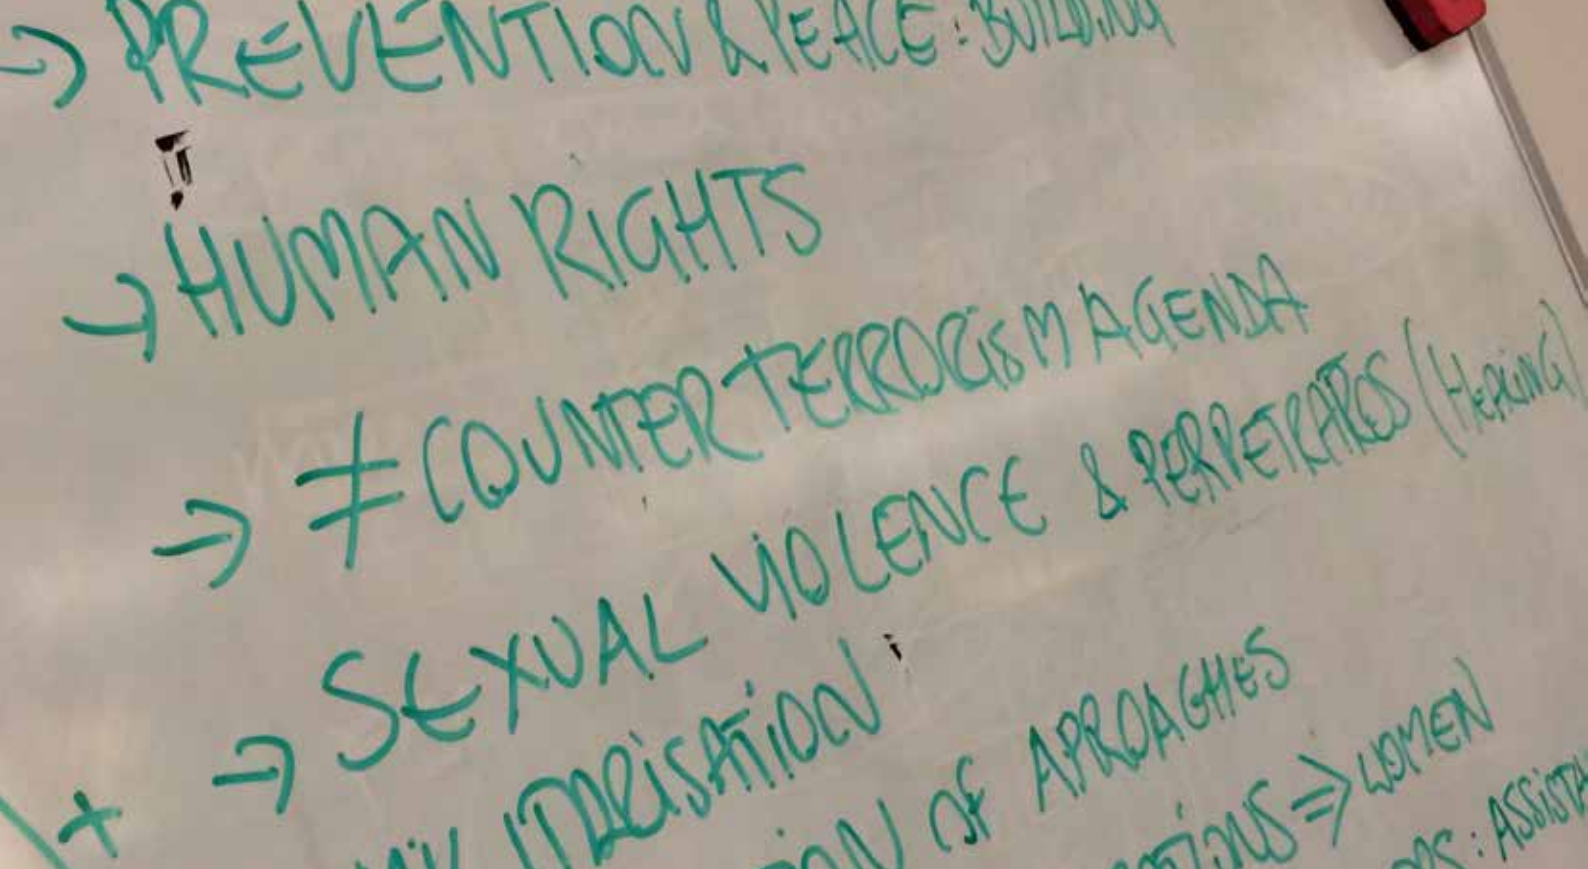 → PREVENTION & PEACE: BUILDING
→ HUMAN RIGHTS
→ ≠ COUNTER TERRORISM AGENDA
→ SEXUAL VIOLENCE & PERPETRAROS (HEALING)
+ ITARISATION
OF APROAGHES
⇒ WOMEN
: ASSISTA